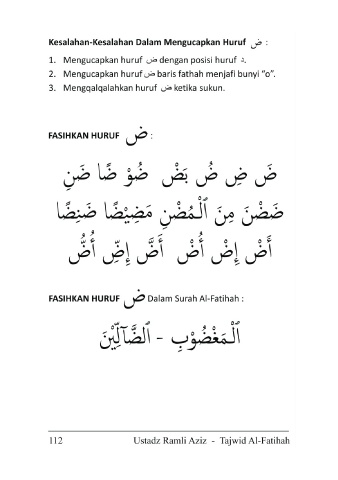 Kesalahan-Kesalahan Dalam Mengucapkan Huruf ض :
1. Mengucapkan huruf ض dengan posisi huruf د.
2. Mengucapkan huruf ض baris fathah menjafi bunyi “o”.
3. Mengqalqalahkan huruf ض ketika sukun.
FASIHKAN HURUF ض :
ضَ ضِ ضُ بَضْ ضُوْ ضًا ضَنِ
ضَضْنَ مِنَ ٱلْمُضْنِ مَضِيْضًا ضَنِضًا
أَضْ إِضْ أُضْ أَضَّ إِضِّ أُضُّ
FASIHKAN HURUF ض Dalam Surah Al-Fatihah :
ٱلْمَغْضُوْبِ - ٱلضَّآلِّيْنَ
112 Ustadz Ramli Aziz - Tajwid Al-Fatihah